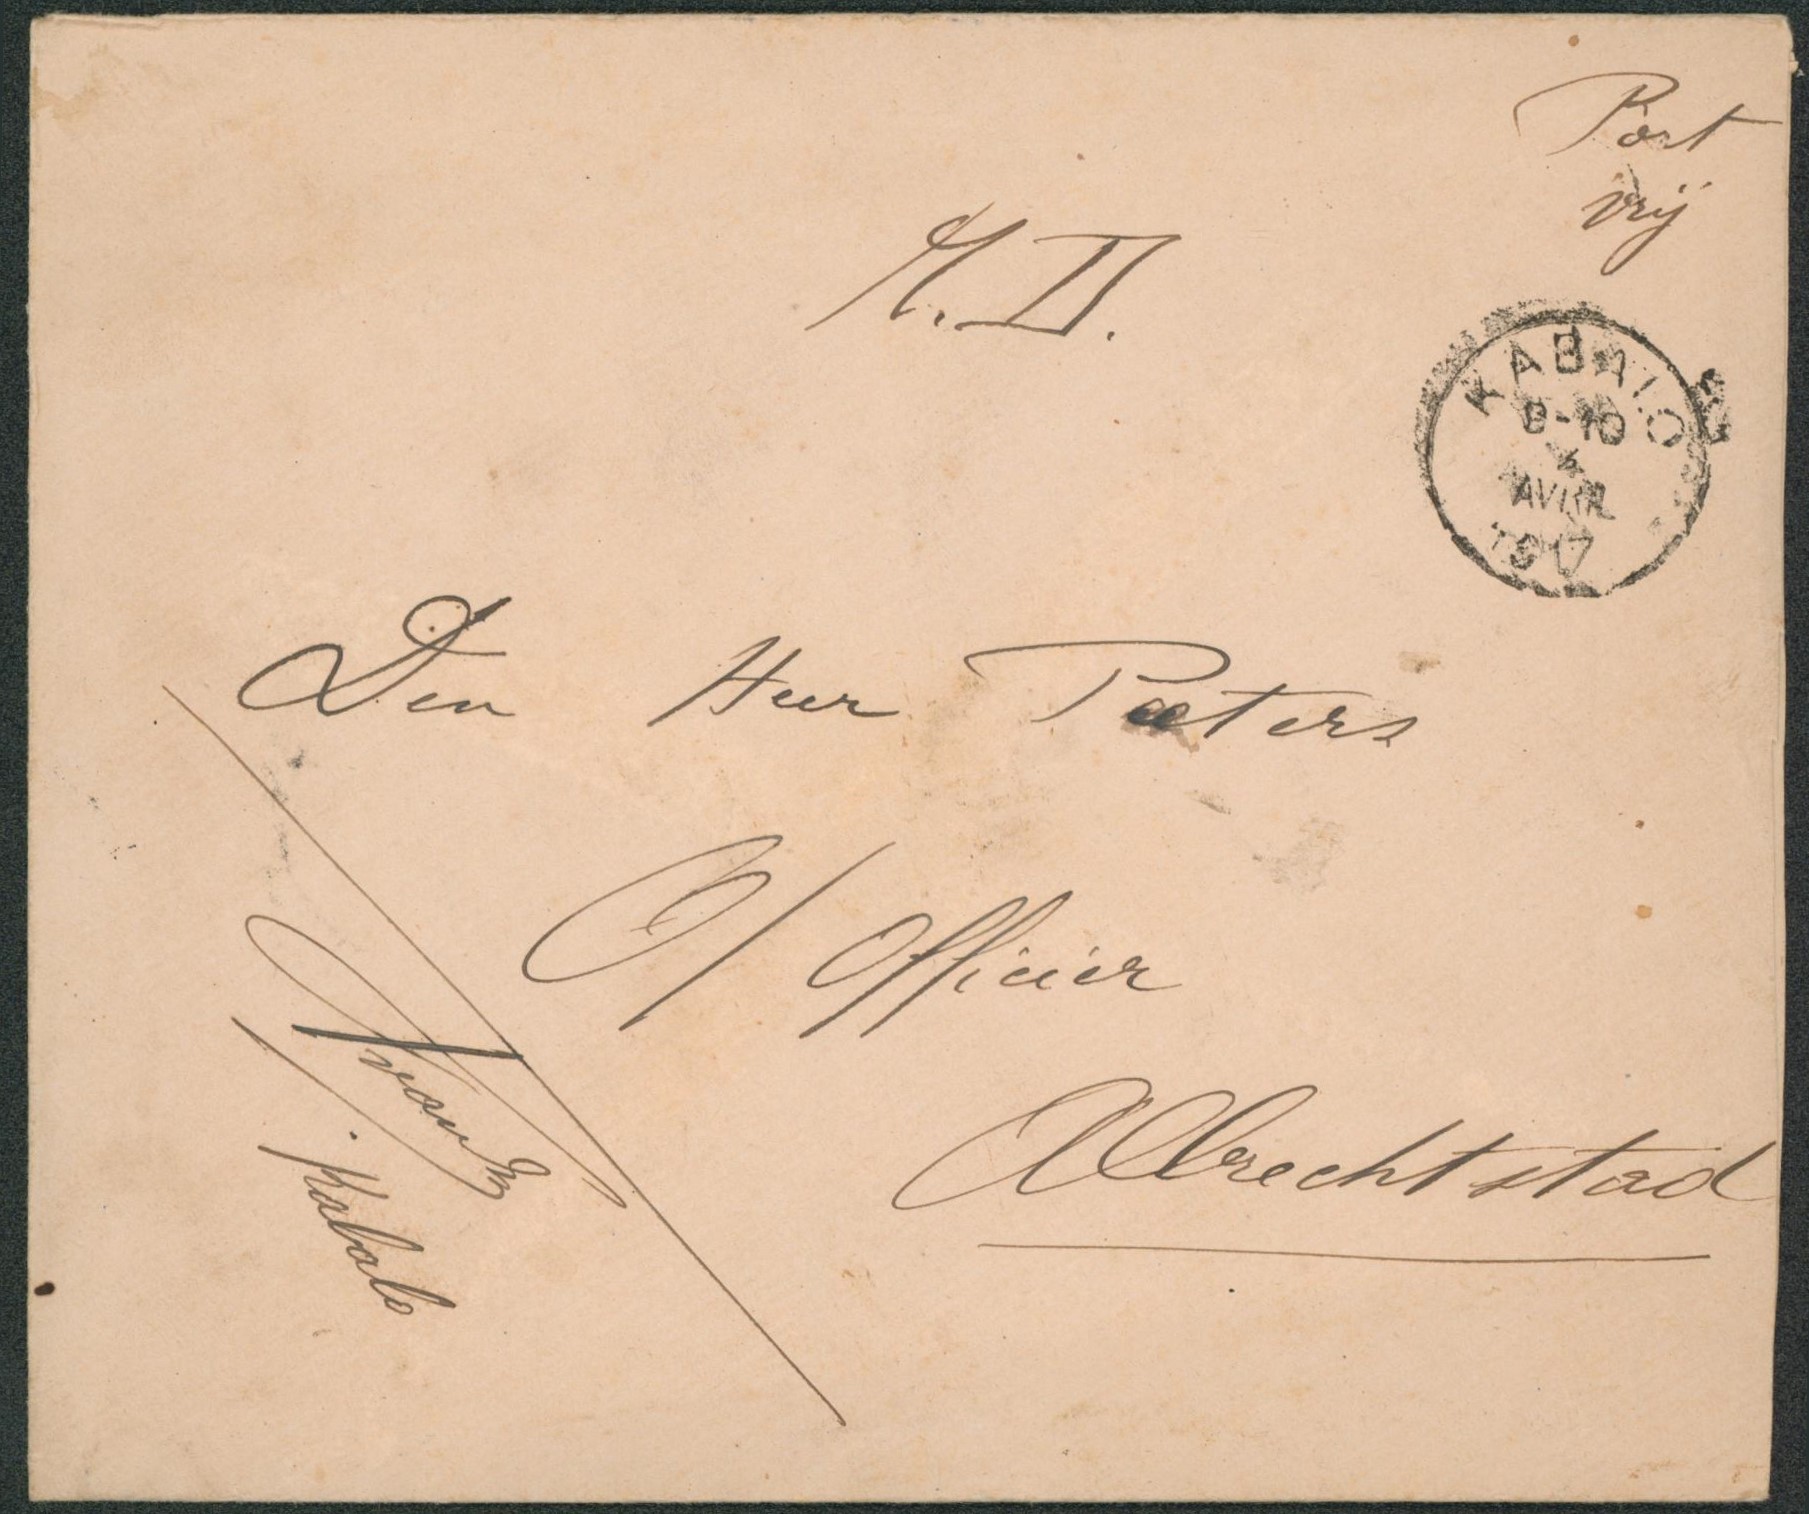 Port
vrij
M.D.
KABALO
8-10
AVRIL
1917
Den Heer Peeters
O/ Officier
Albrechtstad
Kabalo